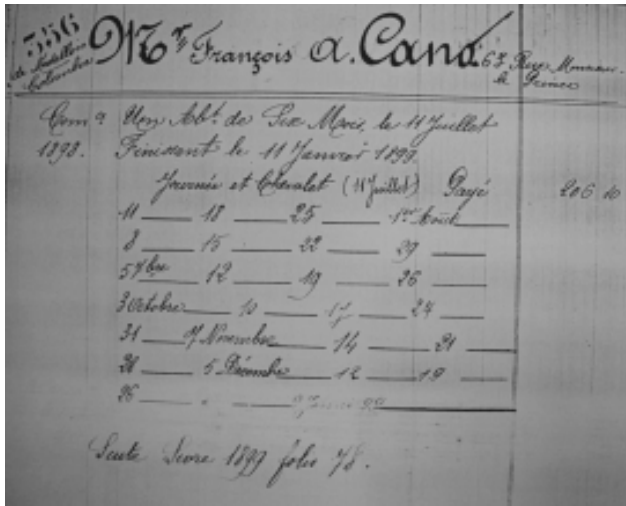 356 Mr François A. Cano. 63 Rue Monsieur-
de
Colombia
le Prince
Com ce Un Abt de Six Mois, le 11 Juillet
1898. Finissant le 11 Janvier 1899.
Journée et Chevalet (11 Juillet) Payé 206 10
11 — 18 — 25 — 1er Août
8 — 15 — 22 — 29
5 7bre — 12 — 19 — 26
3 Octobre — 10 — 17 — 24
31 — 7 Novembre — 14 — 21
28 — 5 Décembre — 12 — 19
26 —
Suite Livre 1899 folio 78.